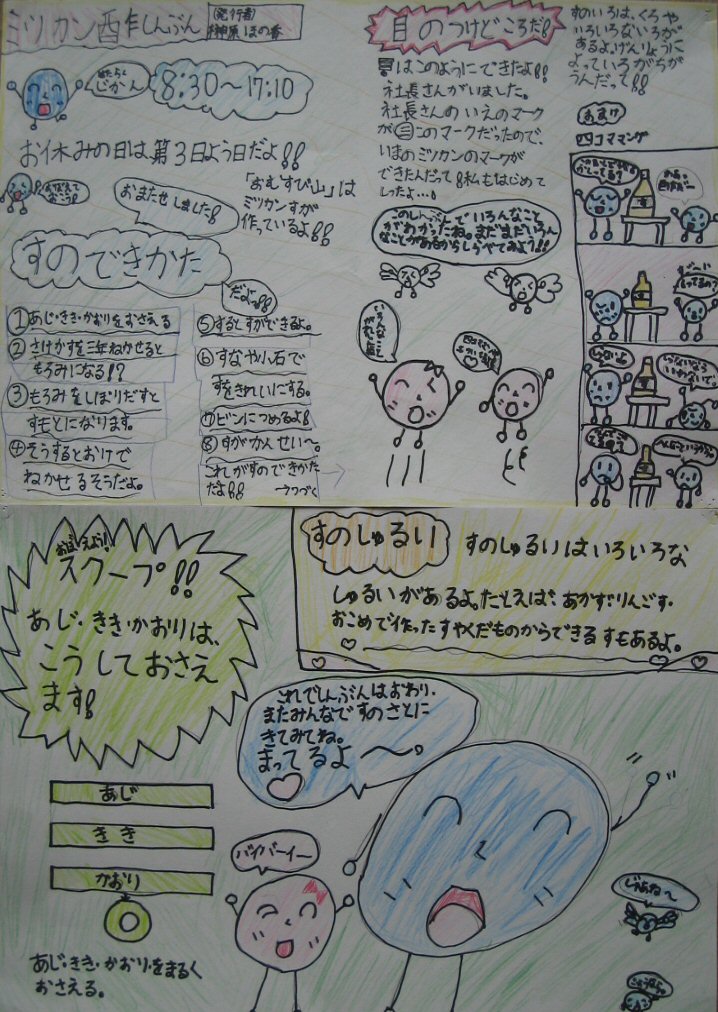 ミツカン酢作しんぶん
(発行者)
榊原ほの香
はたらく
じかん
8:30〜17:10
お休みの日は、第3日よう日だよ!!
おぼえて
おこう!
おまたせしました!
「おむすび山」は
ミツカンすが
作っているよ!!
すのできかた
だよっ!!
①あじ・きき・かおりをおさえる
②さけかすを三年ねかせると
もろみになる!?
③もろみをしぼりだすと
すもとになります。
④そうするとおけで
ねかせるそうだよ。
⑤するとすができるよ。
⑥すなや小石で
すをきれいにする。
⑦ビンにつめるよ!
⑧すがかんせい〜。
これがすのできかた
だよ!!
→つづく
目のつけどころだ!
㊂はこのようにできたよ!!
社長さんがいました。
社長さんのいえのマーク
が㊂このマークだったので、
いまのミツカンのマークが
できたんだって!私もはじめて
しったよ…!
このしんぶんでいろんなこと
がわかったね。まだまだいろん
なことがあるからしらべてみよう!!
すのいろは、くろや
いろいろないろが
あるよ。げんりょうに
よっていろがちが
うんだって!!
おまけ
四コママンガ
スクープ!!
あじ・きき・かおりは、
こうしておさえ
ます!
あじ
きき
かおり
あじ・きき・かおり・をまるく
おさえる。
すのしゅるい
すのしゅるいはいろいろな
しゅるいがあるよ。たとえば、あかず・りんごす・
おこめで作ったすやくだものからできるすもあるよ。
これでしんぶんはおわり・
またみんなですのさとに
きてみてね。
まってるよ〜。
バイバーイー
じゃあね〜